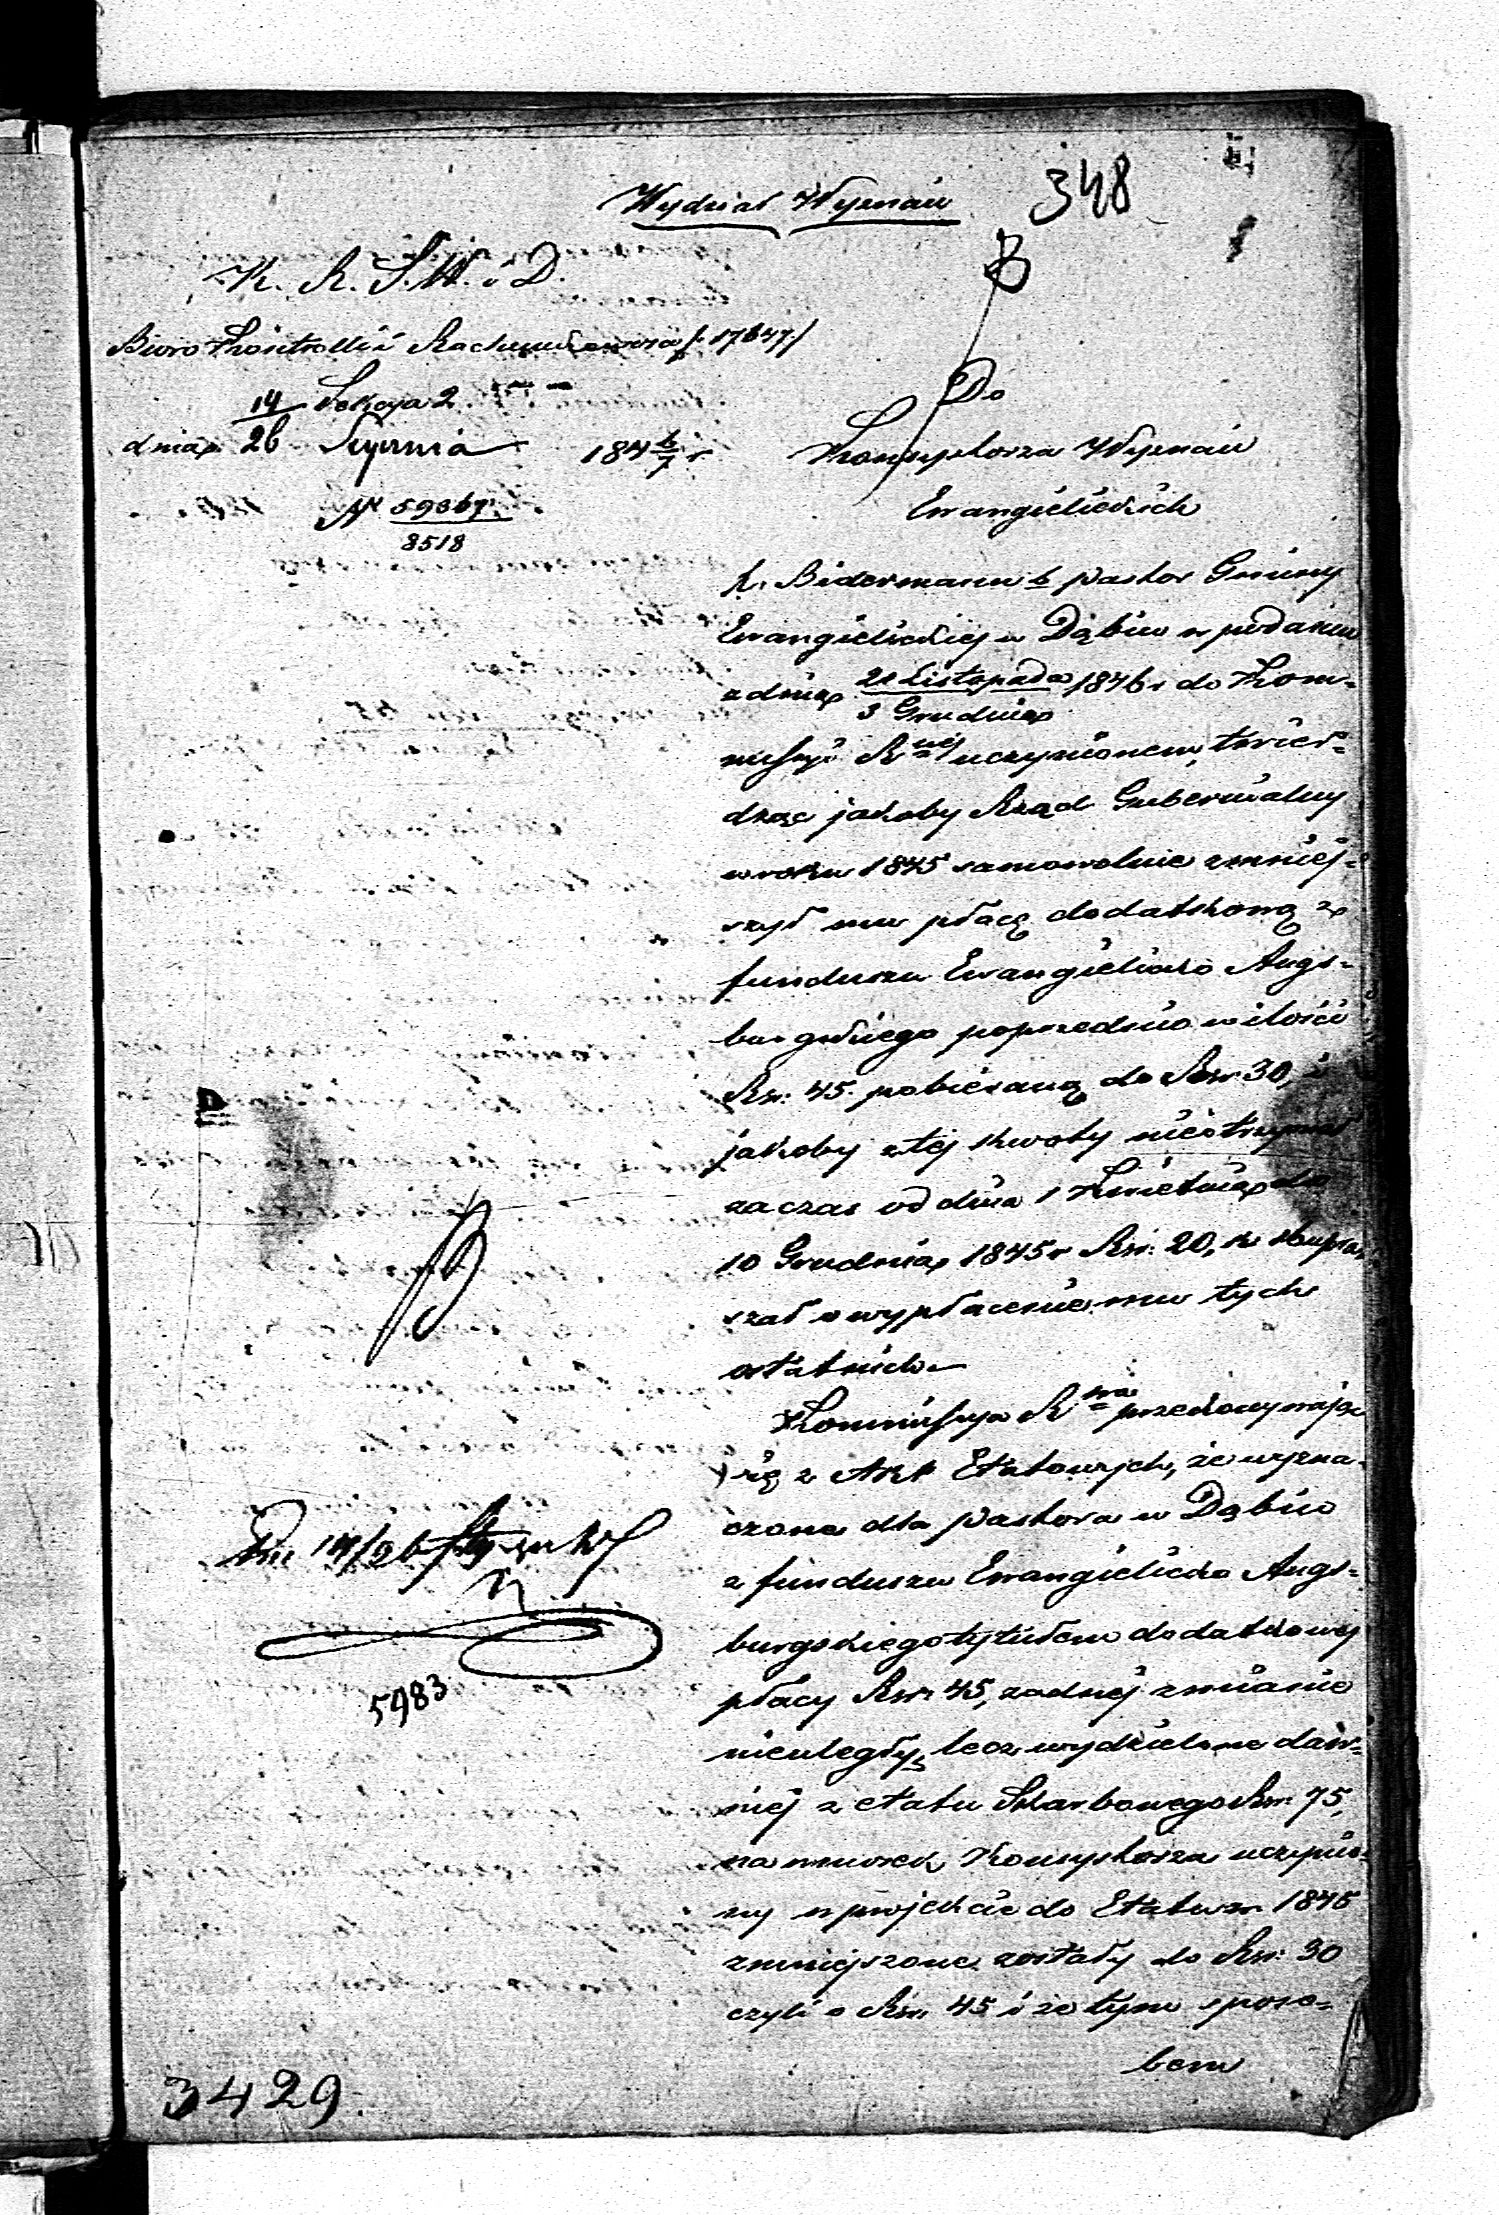 Wydział Wyznań
348
K. R. S. W. i D.
Biuro Kontrolli i Rachunkowości /: 17647 /
Sekcya 2
dnia 14/26 Stycznia 184 6/7 r
Do
Konsystorza Wyznań
Ewangielickich
№ 59367/8518
X. Biderman b. Pastor Gminy
Ewangielickiej w Dąbiu w podaniu
z dnia 21 Listopada/3 Grudnia 1846 r do Kom-
missyi R wej uczynionem, twier-
dząc jakoby Rząd Gubernialny
w roku 1845 samowolnie zmniej-
szył mu płacę dodatkową z
funduszu Ewangielicko Augs-
burgskiego poprzednio w ilości
Rsr. 45. pobieraną do Rsr 30, i
jakoby z tej kwoty nieotrzymał
za czas od dnia 1 Kwietnia do
10 Grudnia 1845 r Rsr. 20,
szał o wypłacenie mu tych
ostatnich
Kommissya R wa przekonywając
się z Akt Etatowych, że wyzna-
czona dla Pastora w Dąbiu
z funduszu Ewangielicko Augs-
burgskiego tytułem dodatkowej
płacy Rsr 45, żadnej zmianie
nieuległy, lecz wydzielane daw-
niej z etatu Skarbowego Rsr. 75,
na wniosek Konsystorza uczynio-
ny w projekcie do Etatu na 1845
zmniejszone zostały do Rsr. 30
czyli o Rsr. 45 i że tym sposo-
bem
5983
3429